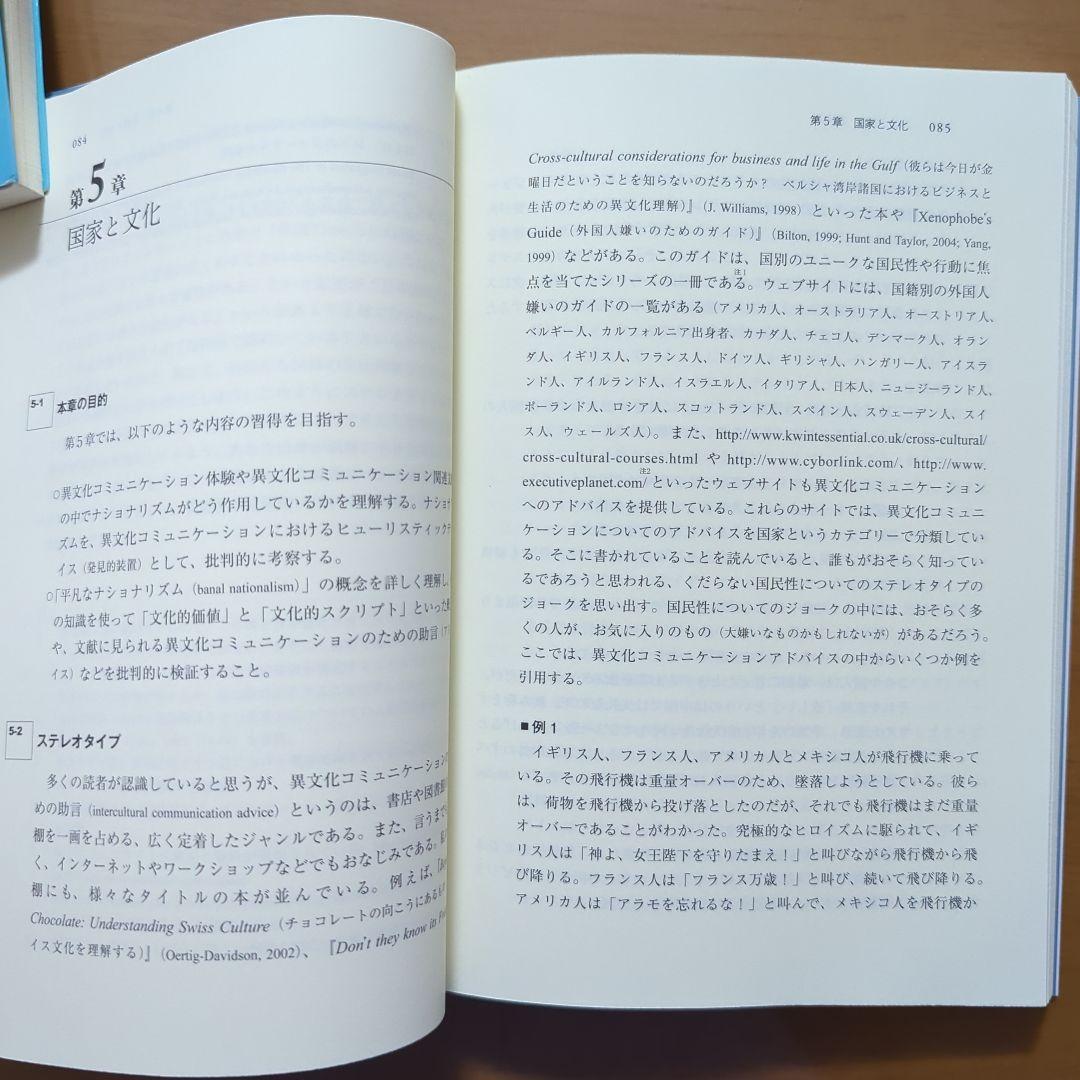 084
第5章
国家と文化
5-1 本章の目的
第5章では、以下のような内容の習得を目指す。
○異文化コミュニケーション体験や異文化コミュニケーション関連
の中でナショナリズムがどう作用しているかを理解する。ナショナ
ズムを、異文化コミュニケーションにおけるヒューリスティック
イス（発見的装置）として、批判的に考察する。
○「平凡なナショナリズム（banal nationalism）」の概念を詳しく理解し
の知識を使って「文化的価値」と「文化的スクリプト」といった
や、文献に見られる異文化コミュニケーションのための助言
イス）などを批判的に検証すること。
5-2 ステレオタイプ
多くの読者が認識していると思うが、異文化コミュニケーション
めの助言（intercultural communication advice）というのは、書店や図書
棚を一画を占める、広く定着したジャンルである。また、言うまで
く、インターネットやワークショップなどでもおなじみである。
棚にも、様々なタイトルの本が並んでいる。例えば、
Chocolate: Understanding Swiss Culture（チョコレートの向こうにある
イス文化を理解する）』（Oertig-Davidson, 2002）、『Don't they know its
第5章 国家と文化 085
Cross-cultural considerations for business and life in the Gulf（彼らは今日が金
曜日だということを知らないのだろうか？ ペルシャ湾岸諸国におけるビジネスと
生活のための異文化理解）』（J. Williams, 1998）といった本や『Xenophobe's
Guide（外国人嫌いのためのガイド）』（Bilton, 1999; Hunt and Taylor, 2004; Yang,
1999）などがある。このガイドは、国別のユニークな国民性や行動に焦
点を当てたシリーズの一冊である注1。ウェブサイトには、国籍別の外国人
嫌いのガイドの一覧がある（アメリカ人、オーストラリア人、オーストリア人、
ベルギー人、カルフォルニア出身者、カナダ人、チェコ人、デンマーク人、オラン
ダ人、イギリス人、フランス人、ドイツ人、ギリシャ人、ハンガリー人、アイスラ
ンド人、アイルランド人、イスラエル人、イタリア人、日本人、ニュージーランド人、
ポーランド人、ロシア人、スコットランド人、スペイン人、スウェーデン人、スイ
ス人、ウェールズ人）。また、http://www.kwintessential.co.uk/cross-cultural/
cross-cultural-courses.html や http://www.cyborlink.com/、http://www.
executiveplanet.com/注2 といったウェブサイトも異文化コミュニケーション
へのアドバイスを提供している。これらのサイトでは、異文化コミュニ
ケーションについてのアドバイスを国家というカテゴリーで分類してい
る。そこに書かれていることを読んでいると、誰もがおそらく知ってい
るであろうと思われる、くだらない国民性についてのステレオタイプの
ジョークを思い出す。国民性についてのジョークの中には、おそらく多
くの人が、お気に入りのもの（大嫌いなものかもしれないが）があるだろう。
ここでは、異文化コミュニケーションアドバイスの中からいくつか例を
引用する。
■例1
イギリス人、フランス人、アメリカ人とメキシコ人が飛行機に乗って
いる。その飛行機は重量オーバーのため、墜落しようとしている。彼ら
は、荷物を飛行機から投げ落としたのだが、それでも飛行機はまだ重量
オーバーであることがわかった。究極的なヒロイズムに駆られて、イギ
リス人は「神よ、女王陛下を守りたまえ！」と叫びながら飛行機から飛
び降りる。フランス人は「フランス万歳！」と叫び、続いて飛び降りる。
アメリカ人は「アラモを忘れるな！」と叫んで、メキシコ人を飛行機か